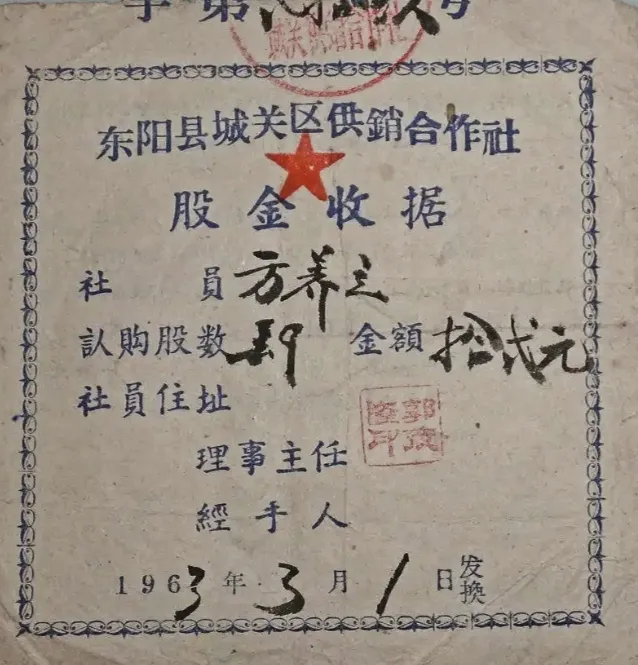 字第号
东阳县城关区供銷合作社
股金收据
社員 方养
认购股数 金額 拾弍元
社員住址
理事主任
經手人
1963年3月1日发换